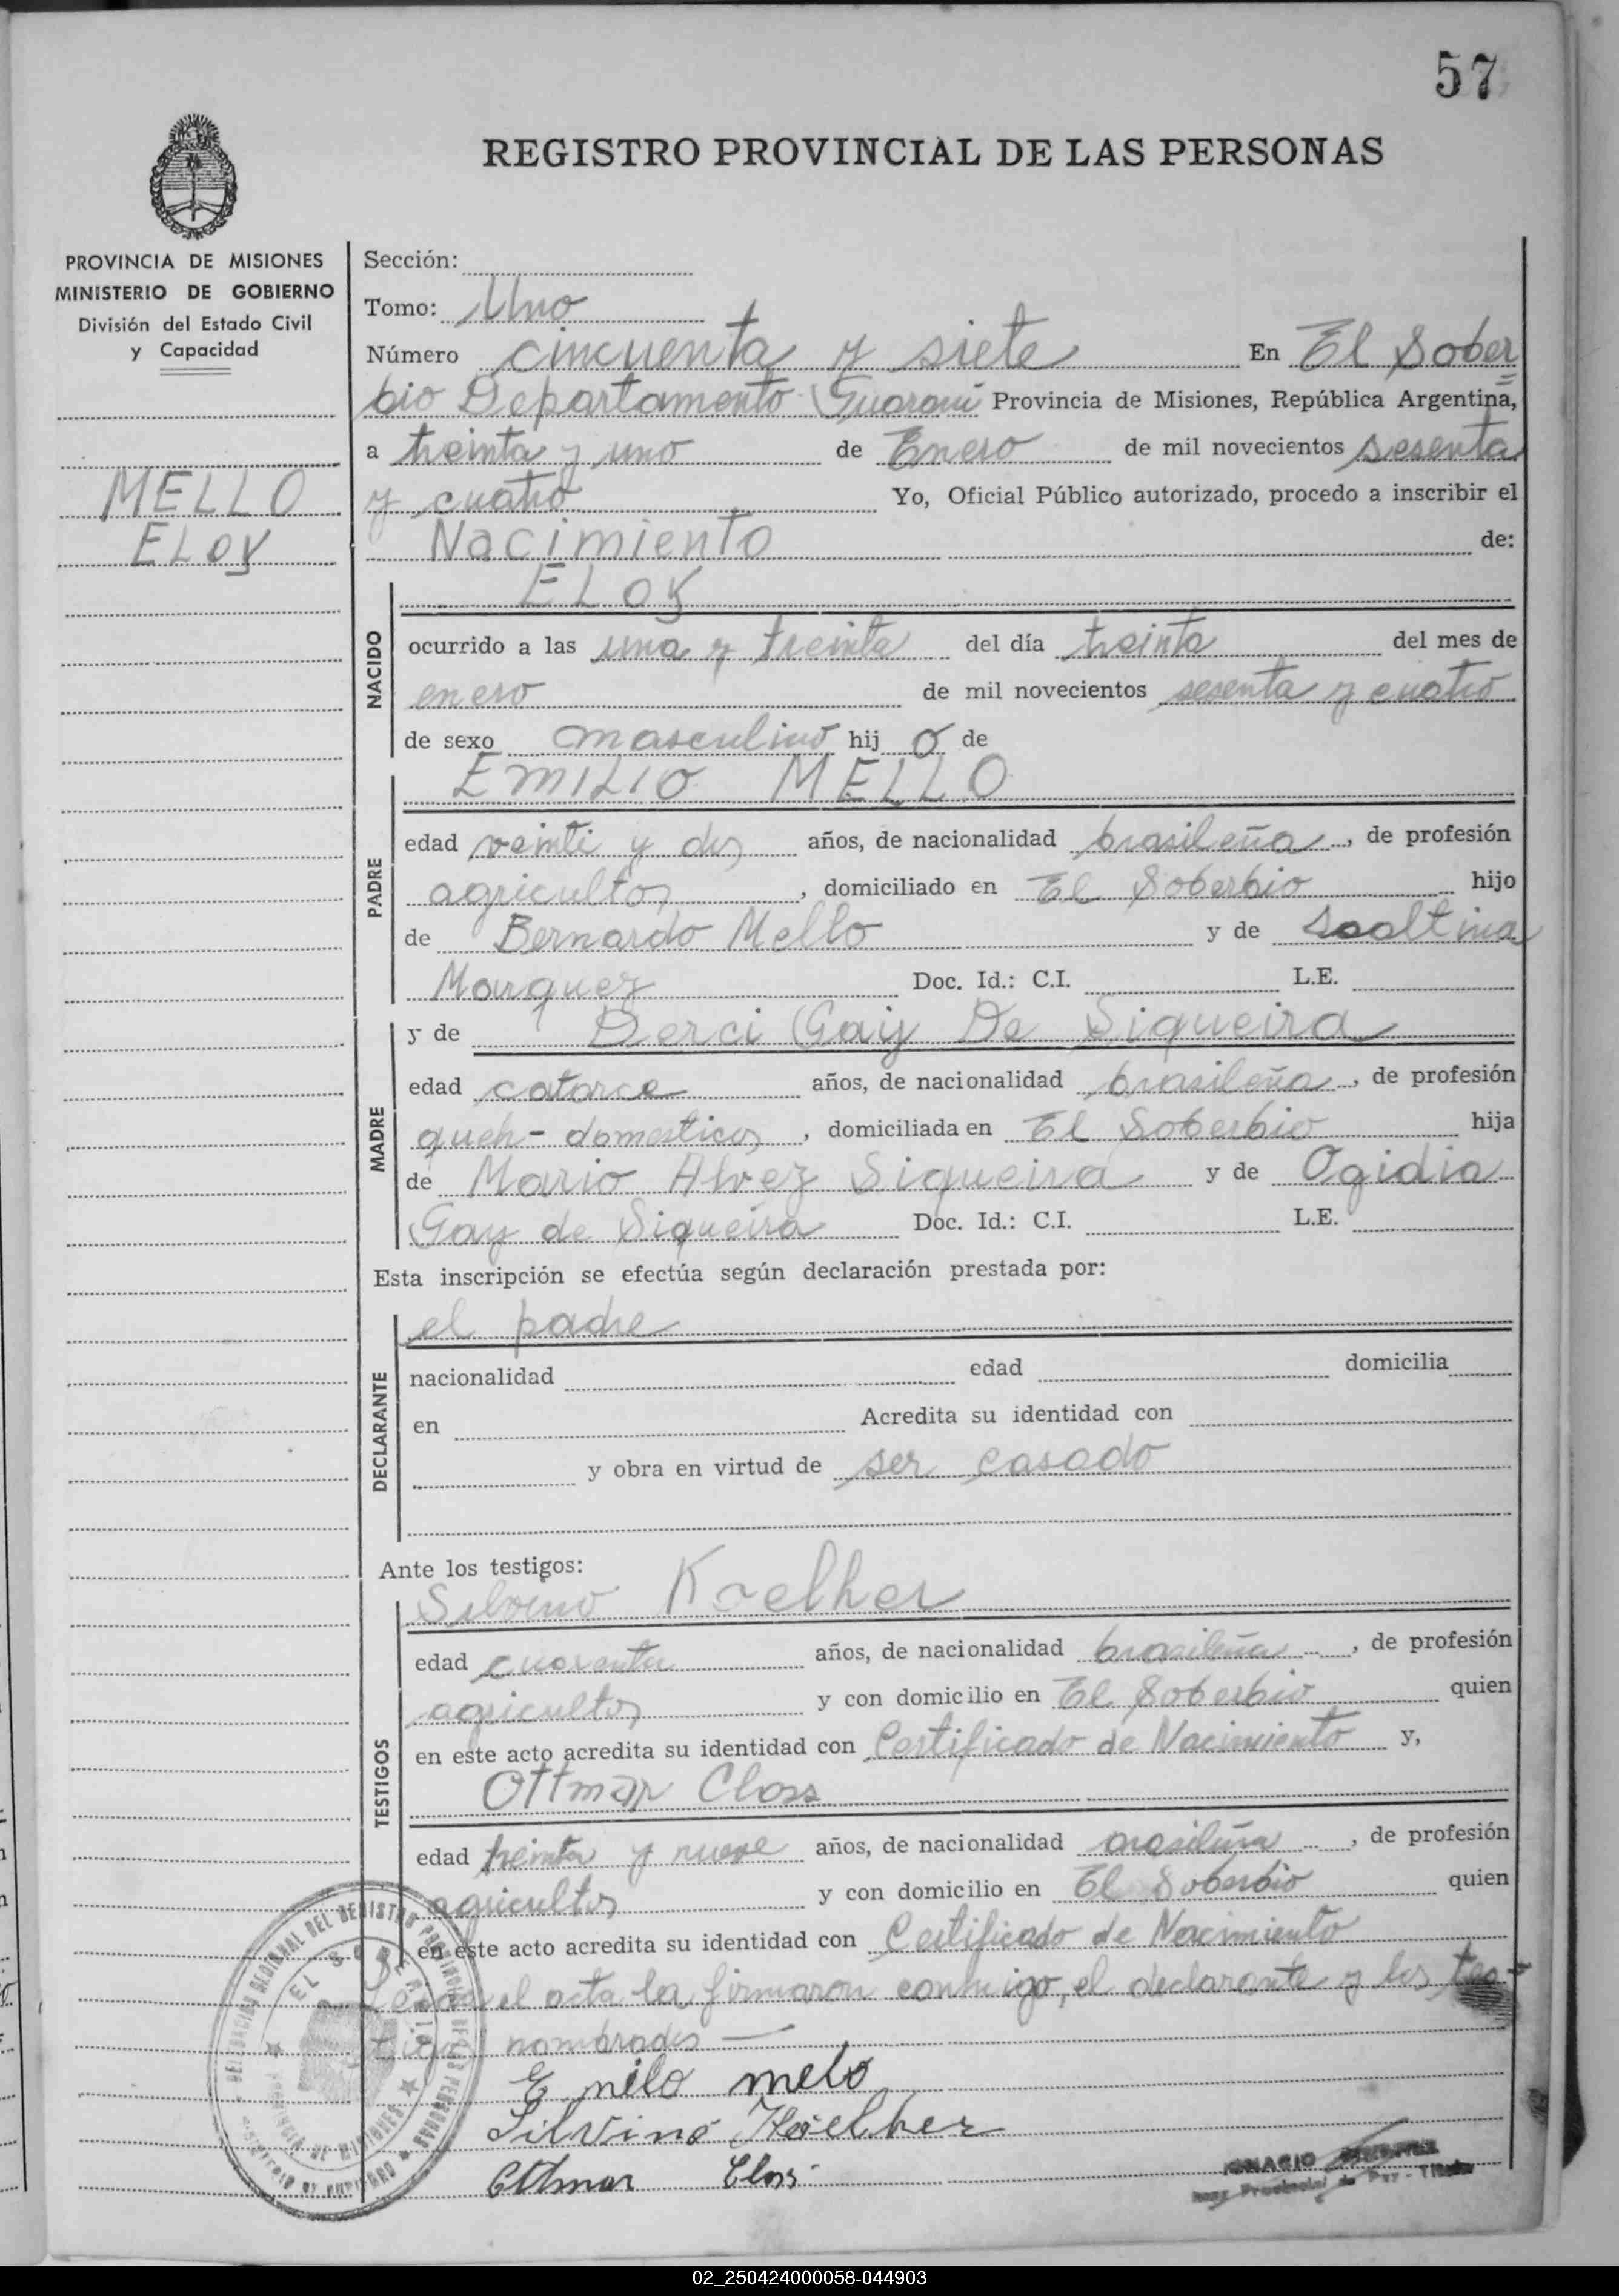 57
REGISTRO PROVINCIAL DE LAS PERSONAS
PROVINCIA DE MISIONES
MINISTERIO DE GOBIERNO
División del Estado Civil
y Capacidad
MELLO
ELOY
Sección:
Tomo: Uno
Número cincuenta y siete En El Sober
bio Departamento Guaraní Provincia de Misiones, República Argentina,
a treinta y uno de Enero de mil novecientos sesenta
y cuatro Yo, Oficial Público autorizado, procedo a inscribir el
Nacimiento de:
NACIDO
ELOY
ocurrido a las una y treinta del día treinta del mes de
enero de mil novecientos sesenta y cuatro
de sexo masculino hij o de
PADRE
EMILIO MELLO
edad veinti y dos años, de nacionalidad brasileña, de profesión
agricultor, domiciliado en El Soberbio hijo
de Bernardo Mello y de
Marquez Doc. Id.: C.I. L.E.
MADRE
y de Derci Gay De Siqueira
edad catorce años, de nacionalidad brasileña, de profesión
queh- domesticos, domiciliada en El Soberbio hija
de Mario Alvez Siqueira y de Ogidia
Gay de Siqueira Doc. Id.: C.I. L.E.
Esta inscripción se efectúa según declaración prestada por:
DECLARANTE
el padre
nacionalidad edad domicilia
en Acredita su identidad con
y obra en virtud de ser casado
Ante los testigos:
TESTIGOS
Silvino Koelher
edad cuarenta años, de nacionalidad brasileña, de profesión
agricultor y con domicilio en El Soberbio quien
en este acto acredita su identidad con Certificado de Nacimiento y,
Ottmar Closs
edad treinta y nueve años, de nacionalidad brasileña, de profesión
agricultor y con domicilio en El Soberbio quien
en este acto acredita su identidad con Certificado de Nacimiento
Leida el acta la firmaron conmigo, el declarante y los tes-
tigos nombrados
E milo melo
Silvino Koelher
Ottmar Closs
IGNACIO
Juez Provincial de Paz - Titular
EL SOBERBIO
PROVINCIA DE MISIONES
02_250424000058-044903